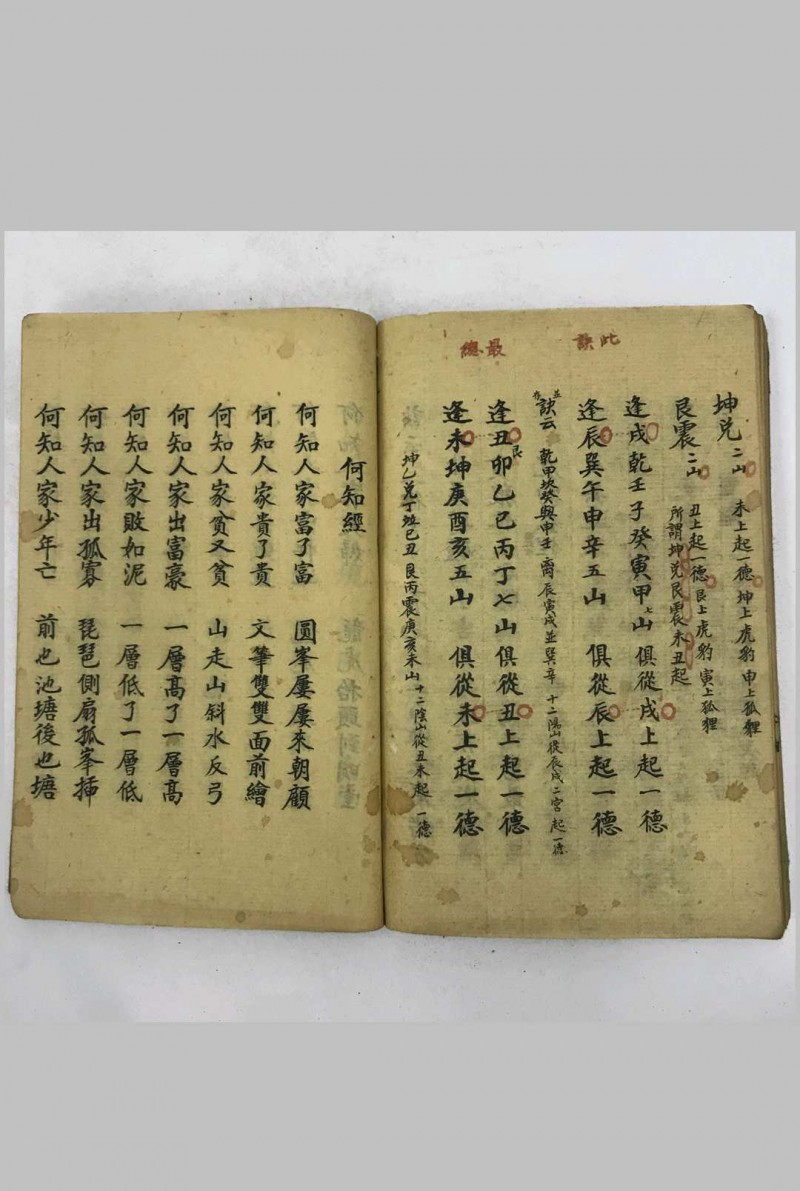 此訣最總
坤兌二山 未上起一德 坤上虎豹 申上狐狸
艮震二山 丑上起一德 艮上虎豹 寅上狐狸
所謂坤兌艮震未丑起
逢戌乾壬子癸寅甲七山 俱從戌上起一德
逢辰巽午申辛五山 俱從辰上起一德
訣云 乾甲坎癸與申壬 离辰寅戌並巽辛 十二陽山從辰戌二宮起一德
逢丑艮卯乙巳丙丁七山俱從丑上起一德
逢未坤庚酉亥五山 俱從未上起一德
坤乙兌丁並巳丑 艮丙震庚亥未山 十二陰山從丑未起一德
何知經
何知人家富了富 圓峯屢屢來朝顧
何知人家貴了貴 文筆雙雙面前繪
何知人家貧又貧 山走山斜水反弓
何知人家出富豪 一層高了一層高
何知人家敗如泥 一層低了一層低
何知人家出孤寡 琵琶側扇孤峯揷
何知人家少年亡 前也池塘後也塘